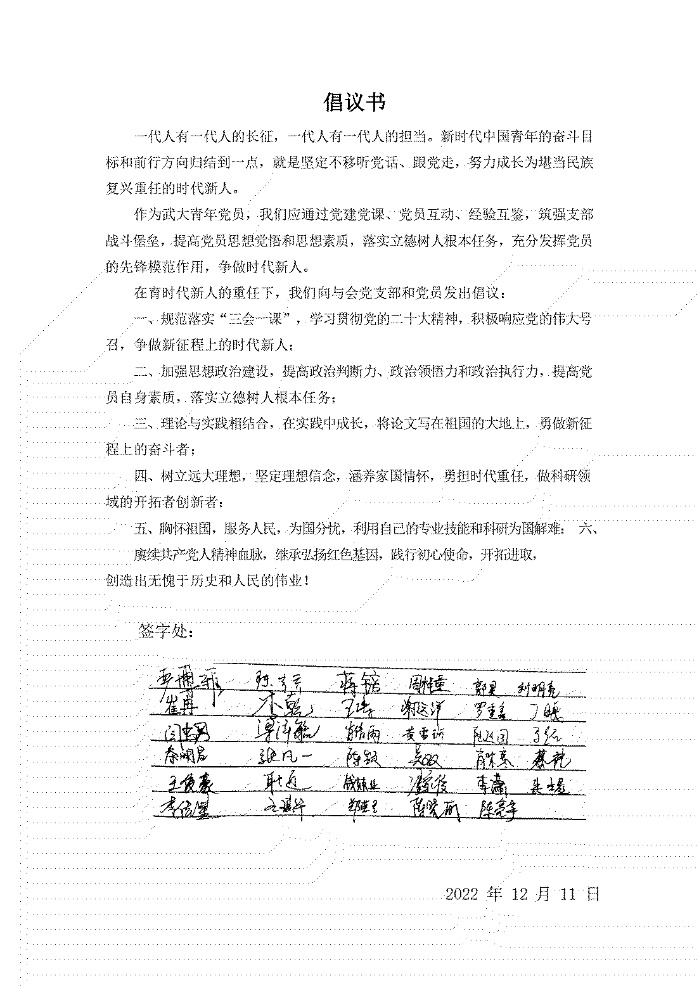 倡议书
一代人有一代人的长征，一代人有一代人的担当。新时代中国青年的奋斗目
标和前行方向归结到一点，就是坚定不移听党话、跟党走，努力成长为堪当民族
复兴重任的时代新人。
作为武大青年党员，我们应通过党建党课、党员互动、经验互鉴，筑强支部
战斗堡垒，提高党员思想觉悟和思想素质，落实立德树人根本任务，充分发挥党员
的先锋模范作用，争做时代新人。
在育时代新人的重任下，我们向与会党支部和党员发出倡议：
一、规范落实“三会一课”，学习贯彻党的二十大精神，积极响应党的伟大号
召，争做新征程上的时代新人；
二、加强思想政治建设，提高政治判断力、政治领悟力和政治执行力，提高党
员自身素质，落实立德树人根本任务；
三、理论与实践相结合，在实践中成长，将论文写在祖国的大地上，勇做新征
程上的奋斗者；
四、树立远大理想，坚定理想信念，涵养家国情怀，勇担时代重任，做科研领
域的开拓者创新者；
五、胸怀祖国，服务人民，为国分忧，利用自己的专业技能和科研为国解难； 六、
赓续共产党人精神血脉，继承弘扬红色基因，践行初心使命，开拓进取，
创造出无愧于历史和人民的伟业！
签字处：
刘明亮
崔冉 丁晓
秦湖君 张凡一
耿近 李潇
陈亮宇
2022 年 12 月 11 日